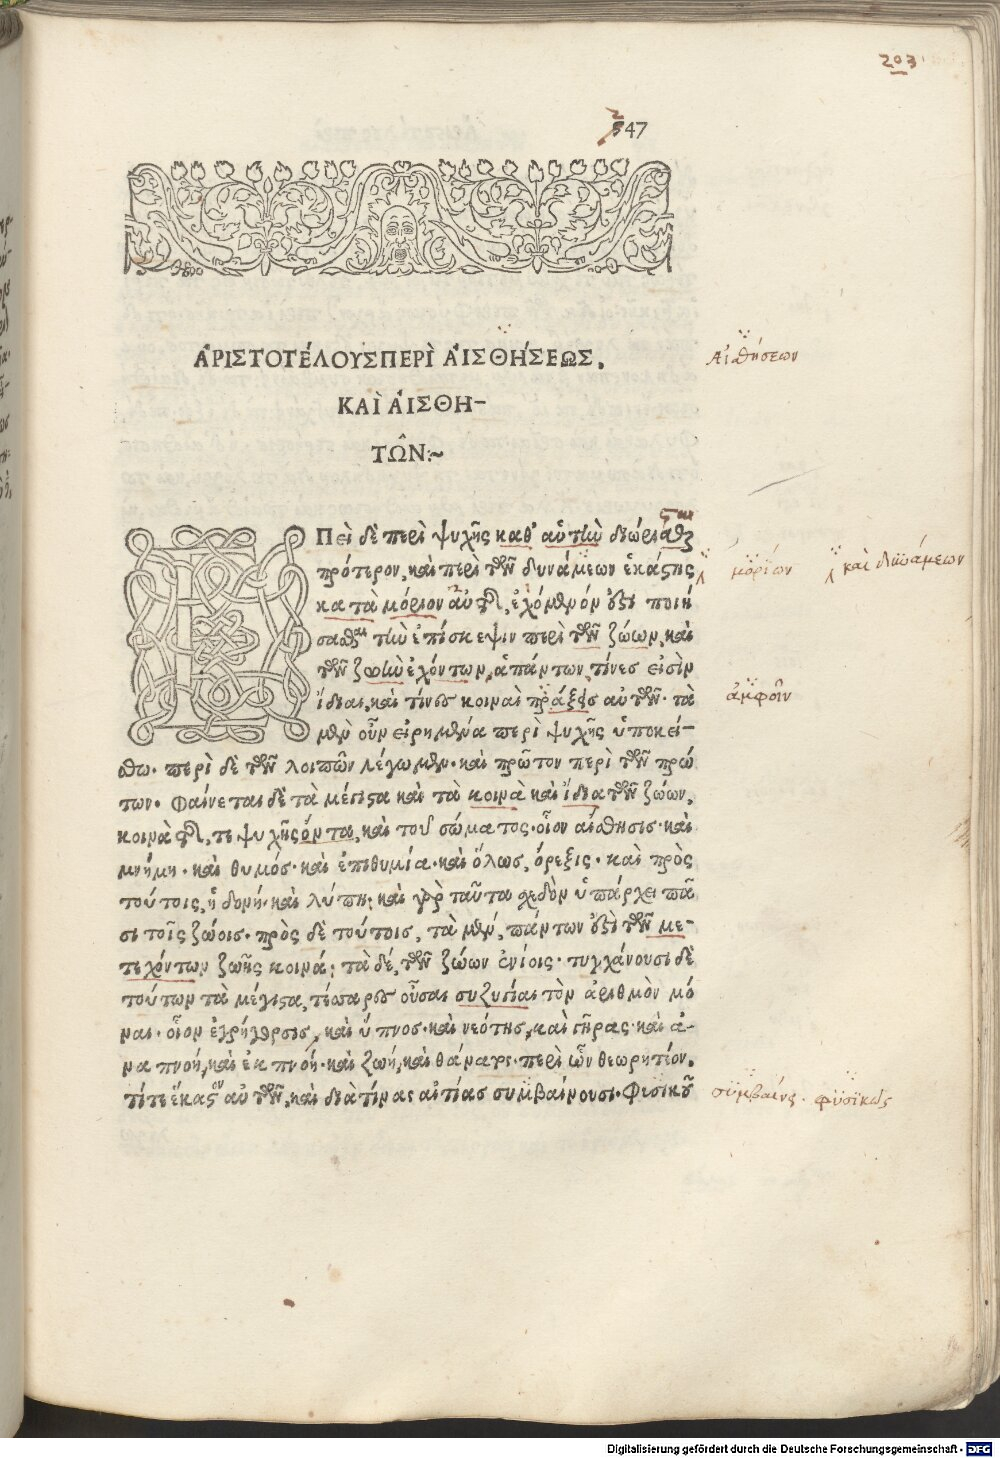 203
247
ἈΡΙΣΤΟΤΈΛΟΥΣ ΠΕΡῚ ἈΙΣΘΉΣΕΩΣ. Αἰσθήσεων
ΚΑῚ ἈΙΣΘΗ-
ΤΩ͂Ν:~
ΕΠεὶ δὲ περὶ ψυχῆς καθ' αὑτὴν διώρισθαι
πρότερον, καὶ περὶ τῶν δυνάμεων ἑκάστης μορίων καὶ δυνάμεων
κατὰ μόριον αὐτῆς, ἐχόμενόν ἐστι ποιή
σασθαι τὴν ἐπίσκεψιν περὶ τῶν ζώων, καὶ
τῶν ζωὴν ἐχόντων, ἁπάντων, τίνες εἰσὶν
ἴδιαι, καὶ τίνες κοιναὶ πράξεις αὐτῶν· τὰ ἀμφοῖν
μὲν οὖν εἰρημένα περὶ ψυχῆς ὑποκεί-
σθω· περὶ δὲ τῶν λοιπῶν λέγωμεν· καὶ πρῶτον περὶ τῶν πρώ
των· Φαίνεται δὲ τὰ μέγιστα καὶ τὰ κοινὰ καὶ ἴδια τῶν ζώων,
κοινὰ τῆς τε ψυχῆς ὄντα, καὶ τοῦ σώματος· οἷον αἴσθησις· καὶ
μνήμη· καὶ θυμός· καὶ ἐπιθυμία· καὶ ὅλως, ὄρεξις· καὶ πρὸς
τούτοις, ἡδονή· καὶ λύπη· καὶ γὰρ ταῦτα σχεδὸν ὑπάρχει πᾶ
σι τοῖς ζώοις· πρὸς δὲ τούτοις, τὰ μέν, πάντων ἐστὶ τῶν με-
τεχόντων ζωῆς κοινά· τὰ δέ, τῶν ζώων ἐνίοις· τυγχάνουσι δὲ
τούτων τὰ μέγιστα, τέσσαρες οὖσαι συζυγίαι τὸν ἀριθμὸν μό
ναι· οἷον ἐγρήγορσις, καὶ ὕπνος· καὶ νεότης, καὶ γῆρας· καὶ ἀ-
ναπνοή, καὶ ἐκπνοή· καὶ ζωή, καὶ θάνατος· περὶ ὧν θεωρητέον.
τί τε ἕκαστον αὐτῶν, καὶ διὰ τίνας αἰτίας συμβαίνουσι· Φυσικοῦ συμβαίνει. φυσικῶς
Digitalisierung gefördert durch die Deutsche Forschungsgemeinschaft - DFG